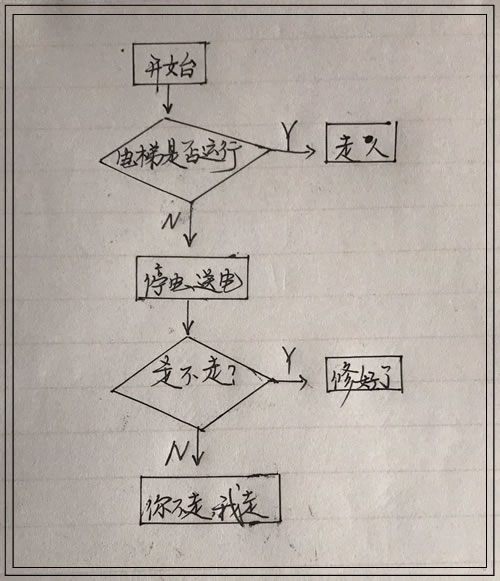 开始
电梯是否运行
Y
走人
N
停电、送电
走不走?
Y
修好了
N
你不走,我走